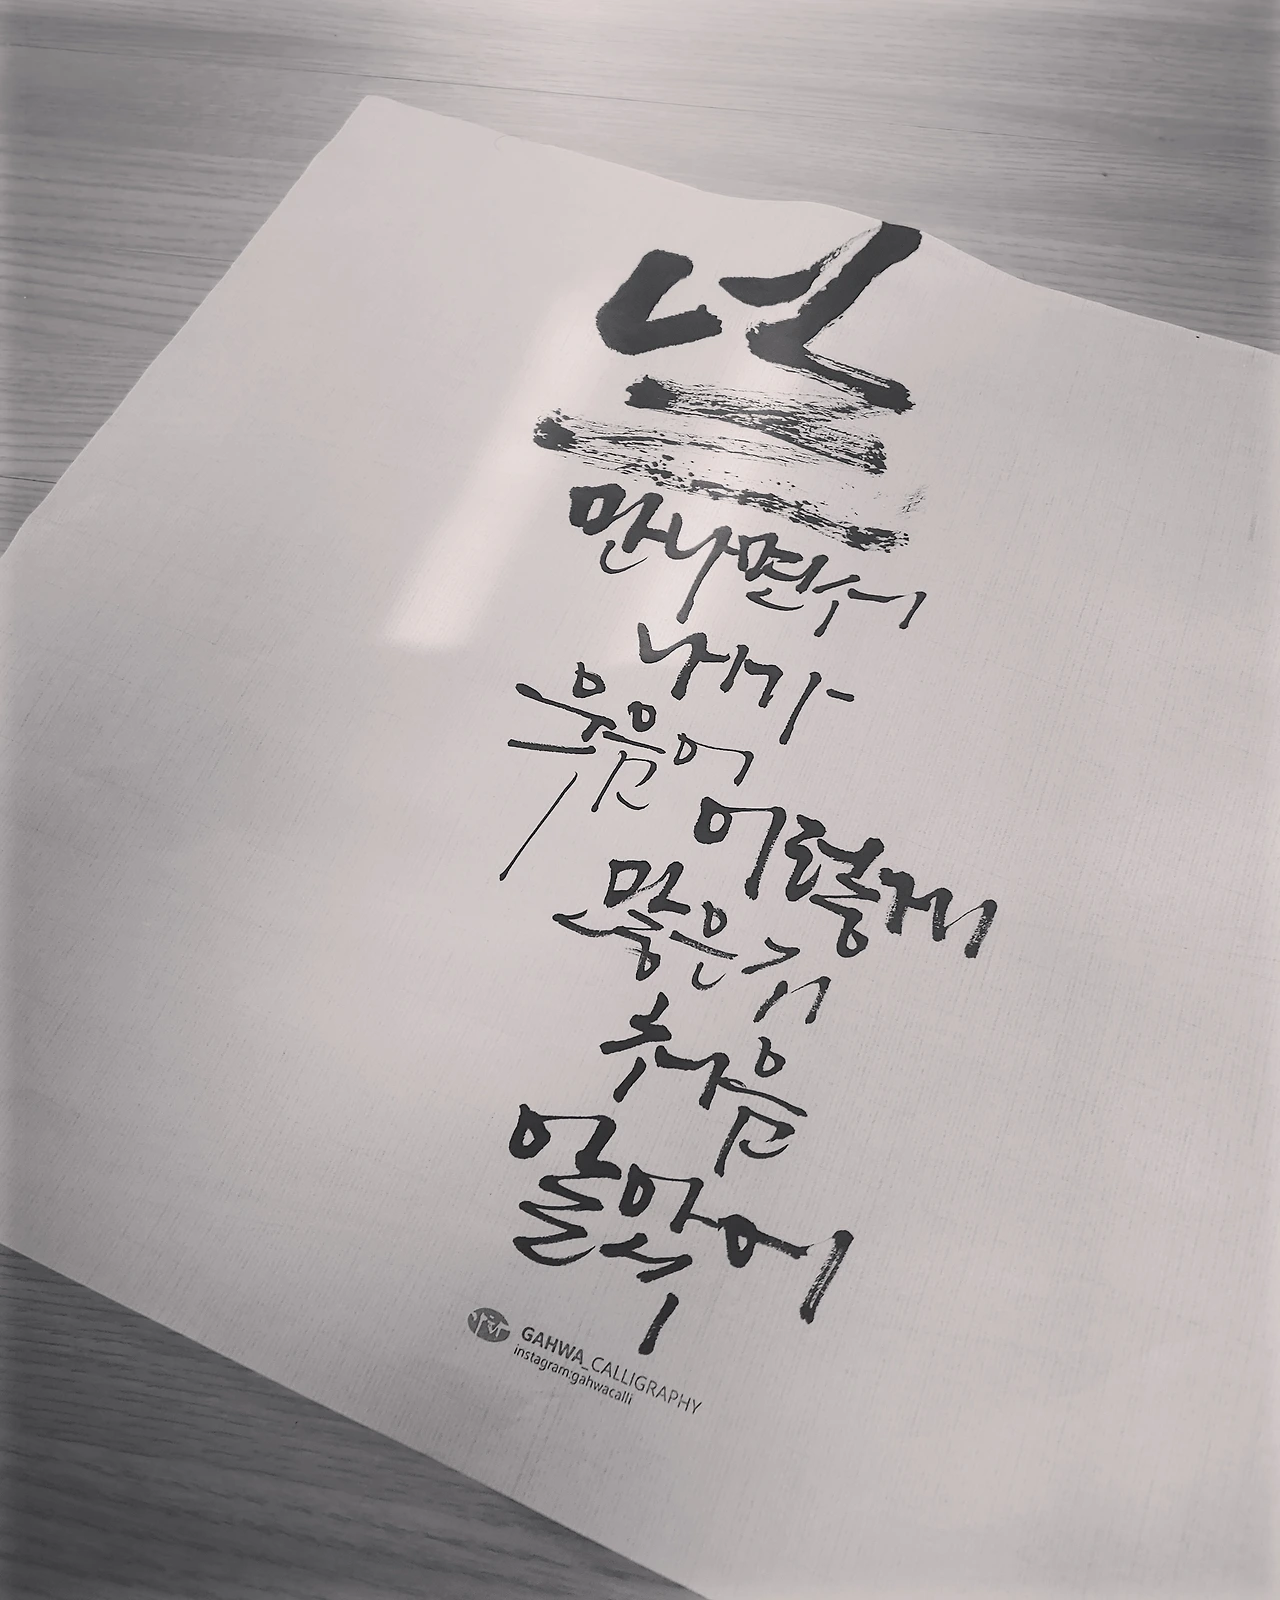 널
만나면서
내가
웃음이
이렇게
많은거
처음
알았어
가화
GAHWA_CALLIGRAPHY
instagram:gahwacalli